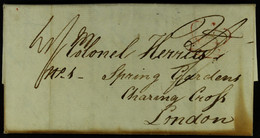 Colonel Herries
No. 1 - Spring Gardens
Charing Cross
London